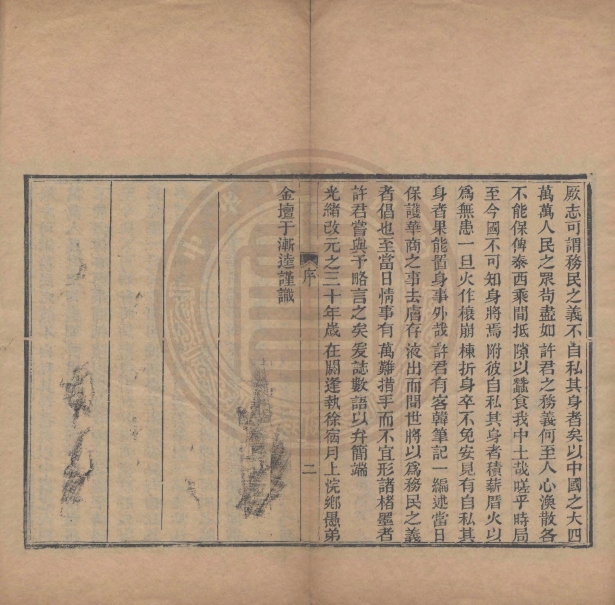 厥志可謂務民之義不自私其身者矣以中國之大四
萬萬人民之眾苟盡如許君之務義何至人心渙散各
不能保俾泰西乘間抵隙以蠶食我中土哉嗟乎時局
至今國不可知身將焉附彼自私其身者積薪厝火以
爲無患一旦火作榱崩棟折身卒不免安見有自私其
身者果能置身事外哉許君有客韓筆記一編述當日
保護華商之事去膚存液出而問世將以爲務民之義
者倡也至當日情事有萬難措手而不宜形諸楮墨者
許君嘗與予略言之矣爰誌數語以弁簡端
光緒改元之三十年歲在閼逢執徐宿月上浣鄉愚弟
金壇于漸逵謹識
序
二